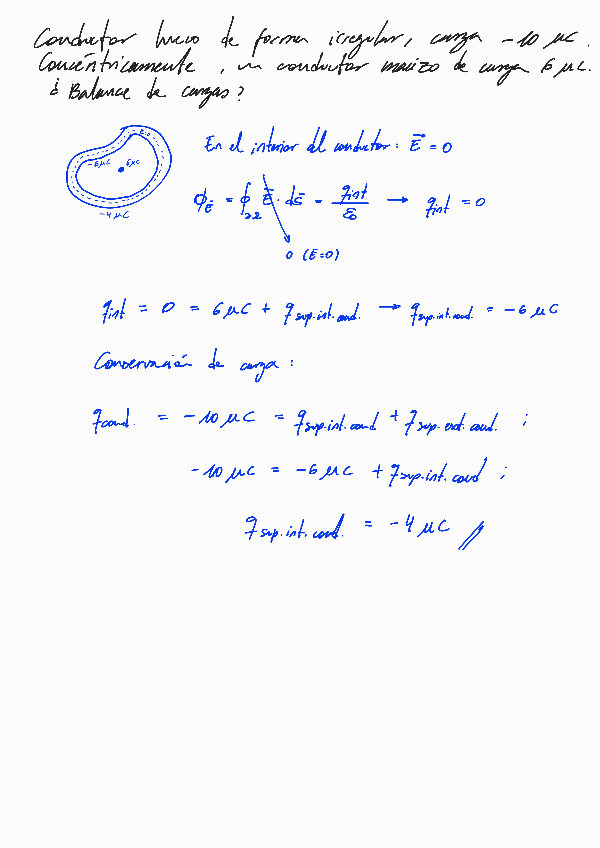 Conductor hueco de forma irregular, carga -10 μC.
Concéntricamente, un conductor macizo de carga 6 μC.
¿Balance de cargas?
E=0
-6μC 6μC
-4μC
En el interior del conductor: E⃗ = 0
ϕ_E⃗ = ∮_∂Σ E⃗ · dS⃗ = q_int/ε₀ → q_int = 0
0 (E=0)
q_int = 0 = 6 μC + q_sup.int.cond. → q_sup.int.cond. = -6 μC
Conservación de carga:
q_cond. = -10 μC = q_sup.int.cond + q_sup.ext.cond. ;
-10 μC = -6 μC + q_sup.int.cond ;
q_sup.int.cond. = -4 μC //